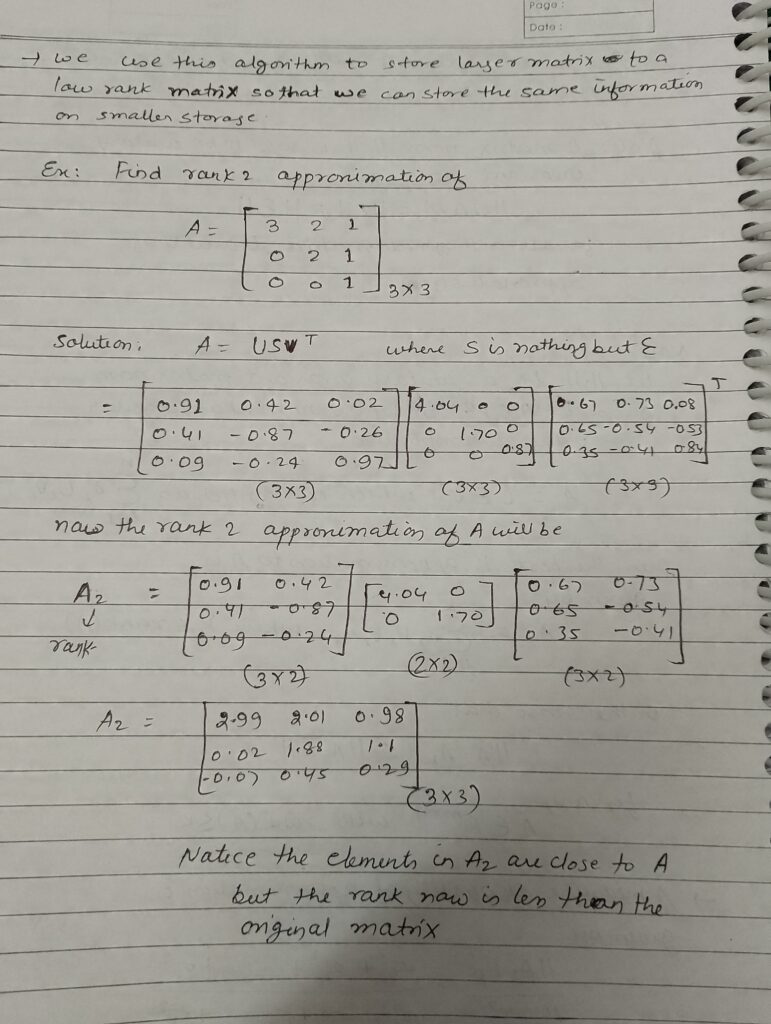 Page :
Date :
→ we use this algorithm to store larger matrix to a
low rank matrix so that we can store the same information
on smaller storage.
Ex: Find rank 2 approximation of
A = [ 3 2 1
0 2 1
0 0 1 ] 3×3
Solution: A = USV^T where S is nothing but Σ
= [ 0.91 0.42 0.02 ] [ 4.04 0 0 ] [ 0.67 0.73 0.08 ]^T
0.41 -0.87 -0.26 0 1.70 0 0.65 -0.54 -0.53
0.09 -0.24 0.97 0 0 0.87 0.35 -0.41 0.84
(3×3) (3×3) (3×3)
now the rank 2 approximation of A will be
A2 = [ 0.91 0.42 ] [ 4.04 0 ] [ 0.67 0.73 ]
↓ 0.41 -0.87 0 1.70 0.65 -0.54
rank 0.09 -0.24 0.35 -0.41
(3×2) (2×2) (3×2)
A2 = [ 2.99 2.01 0.98 ]
0.02 1.88 1.1
-0.07 0.45 0.29
(3×3)
Notice the elements in A2 are close to A
but the rank now is less than the
original matrix